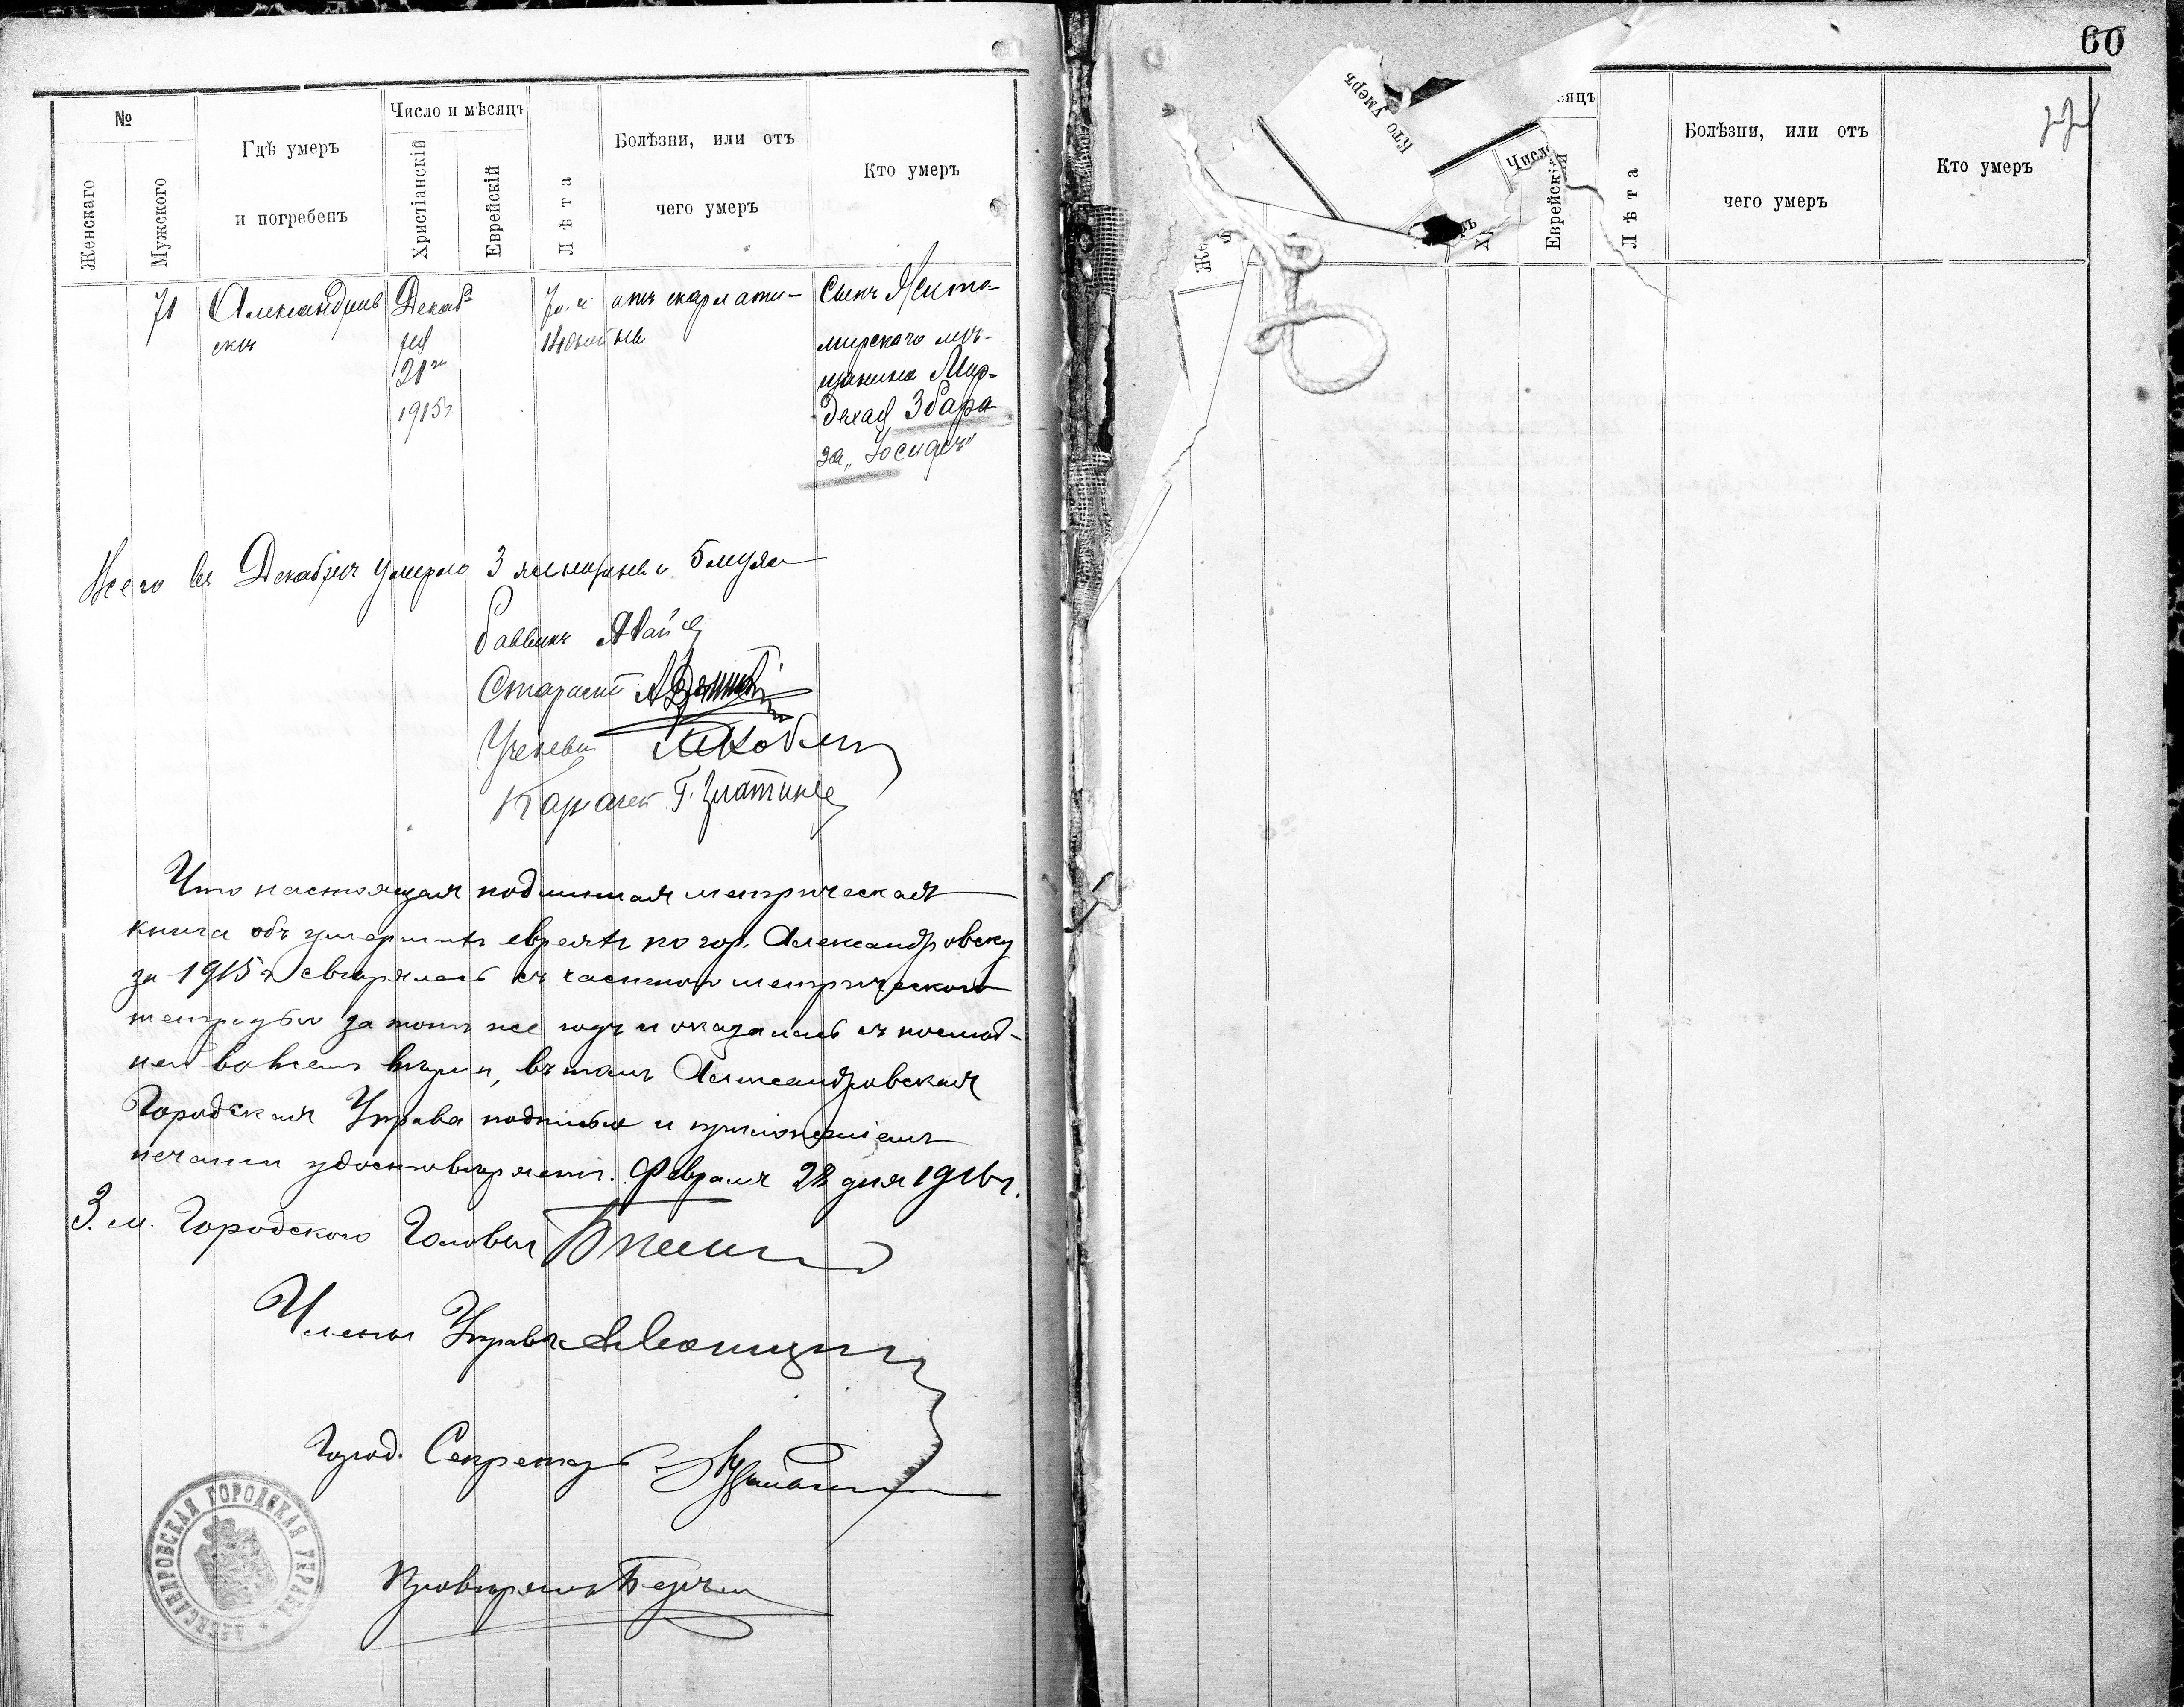 60
№
Женскаго
Мужского
Гдѣ умеръ
и погребенъ
Число и мѣсяцъ
Христіанскій
Еврейскій
Лѣта
Болѣзни, или отъ
чего умеръ
Кто умеръ
71
Александров
скъ
Декаб
ря
1915г
отъ скарлати-
ны
Сынъ Жито-
мирскаго мѣ-
щанина Мор-
дехая Збара-
за „Іосифъ"
Всего въ Декабрѣ умерло 3 женщины и 5 муж
Раввинъ
Староста
Ученый
Казначей Г. Златинъ
Что настоящая подлинная метрическая
книга объ умершихъ евреяхъ по гор. Александровску
за 1915 г. свѣрялась съ частною метрическою
тетрадью за тотъ же годъ и оказалась съ послѣд-
ней во всемъ вѣрна, въ томъ Александровская
Городская Управа подписью и приложеніемъ
печати удостовѣряетъ. Февраля 28 дня 1916 г.
З. м. Городского Головы
Члены Управы
Город. Секретарь
АЛЕКСАНДРОВСКАЯ ГОРОДСКАЯ УПРАВА
Провѣрялъ
Кто умеръ
сяцъ
Число
Еврейскій
Лѣта
Болѣзни, или отъ
чего умеръ
Кто умеръ